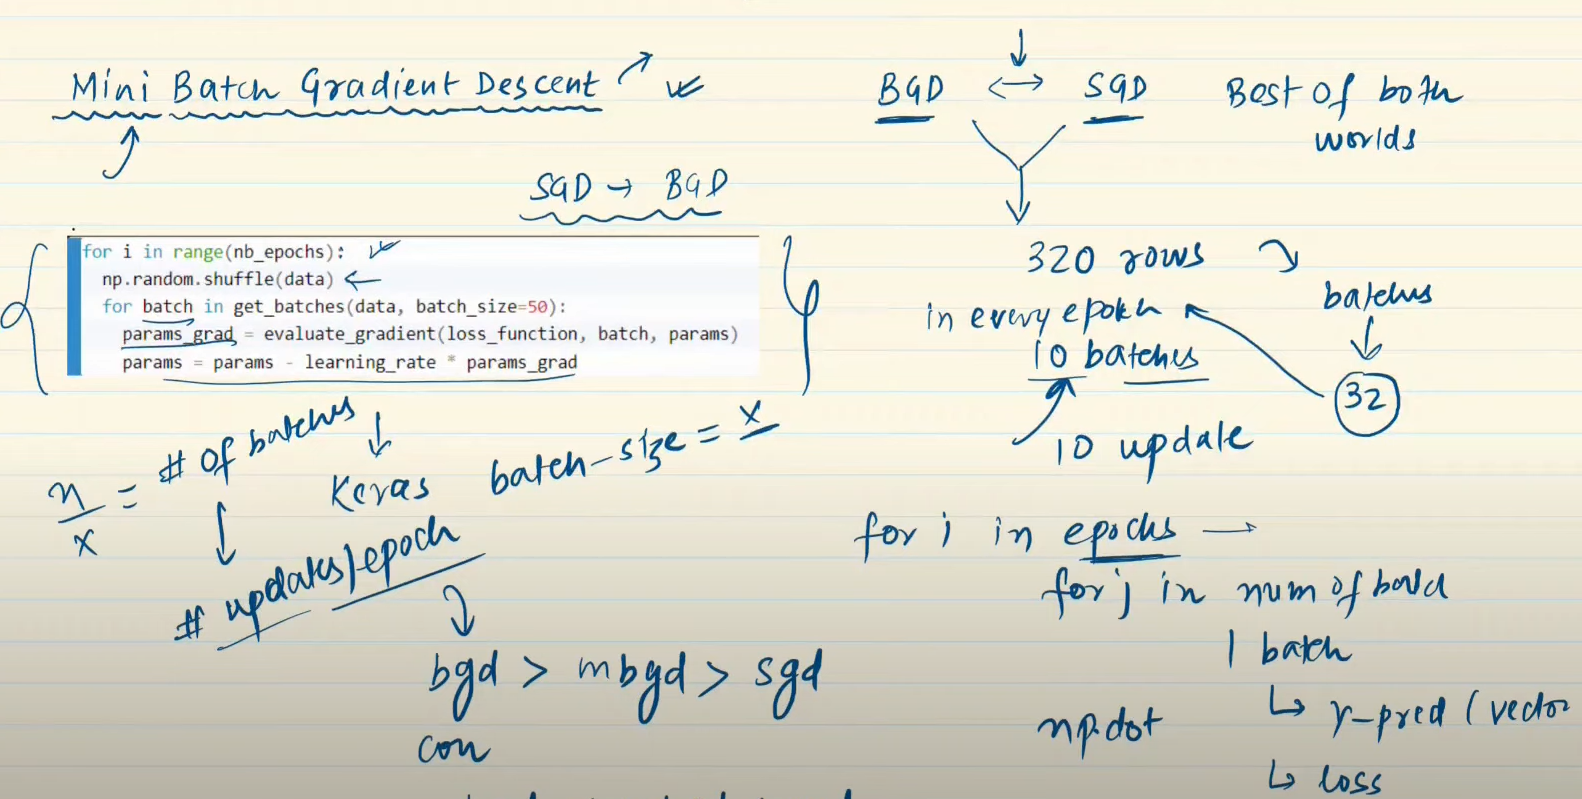 Mini Batch Gradient Descent
SGD → BGD
for i in range(nb_epochs):
np.random.shuffle(data)
for batch in get_batches(data, batch_size=50):
params_grad = evaluate_gradient(loss_function, batch, params)
params = params - learning_rate * params_grad
n/x = # of batches
Keras
batch-size = x
# updates/epoch
bgd > mbgd > sgd
con
BGD ↔ SGD
Best of both
worlds
320 rows
batches
32
in every epoch
10 batches
10 update
for i in epochs →
for j in num of
1 batch
↳ y-pred (vector
np.dot
↳ loss